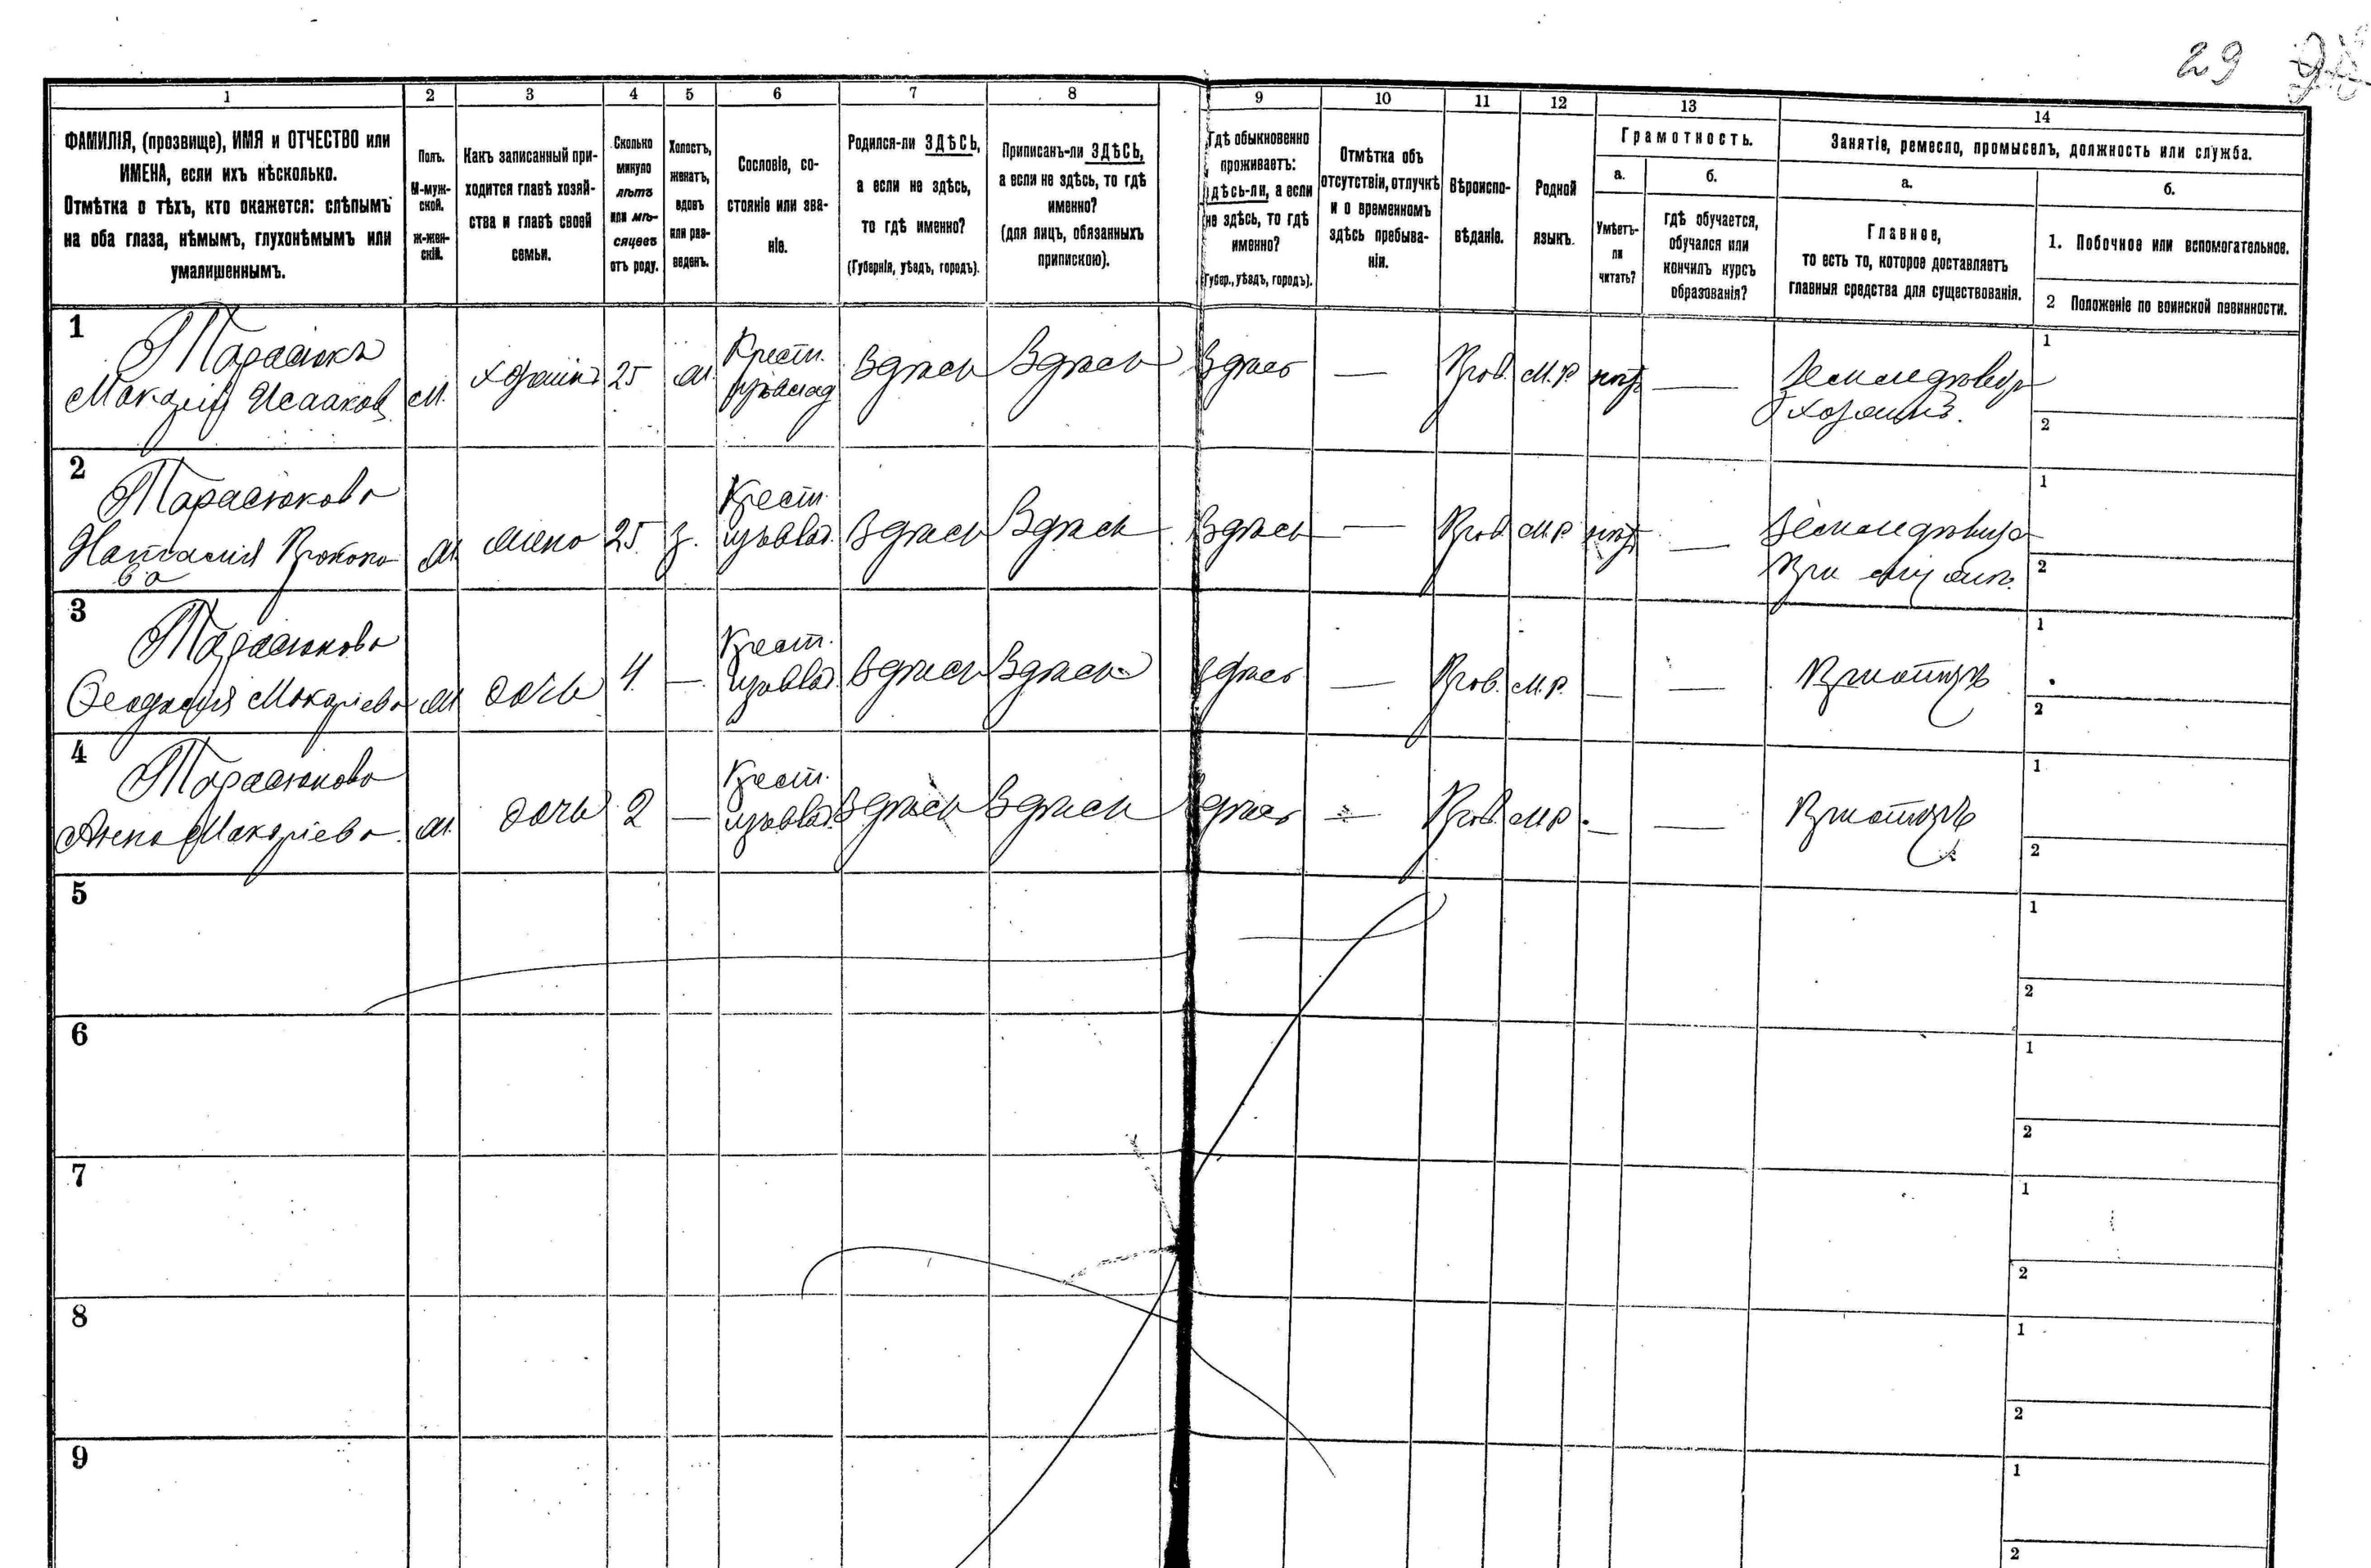 29
1 2 3 4 5 6 7 8 9 10 11 12 13 14
ФАМИЛІЯ, (прозвище), ИМЯ и ОТЧЕСТВО или
ИМЕНА, если ихъ нѣсколько.
Отмѣтка о тѣхъ, кто окажется: слѣпымъ
на оба глаза, нѣмымъ, глухонѣмымъ или
умалишеннымъ.
Полъ.
М-муж-
ской.
ж-жен-
скій.
Какъ записанный при-
ходится главѣ хозяй-
ства и главѣ своей
семьи.
Сколько
минуло
лѣтъ
или мѣ-
сяцевъ
отъ роду.
Холостъ,
женатъ,
вдовъ
или раз-
веденъ.
Сословіе, со-
стояніе или зва-
ніе.
Родился-ли ЗДѢСЬ,
а если не здѣсь,
то гдѣ именно?
(Губернія, уѣздъ, городъ).
Приписанъ-ли ЗДѢСЬ,
а если не здѣсь, то гдѣ
именно?
(для лицъ, обязанныхъ
припискою).
Гдѣ обыкновенно
проживаетъ:
здѣсь-ли, а если
не здѣсь, то гдѣ
именно?
(Губер., уѣздъ, городъ).
Отмѣтка объ
отсутствіи, отлучкѣ
и о временномъ
здѣсь пребыва-
ніи.
Вѣроиспо-
вѣданіе.
Родной
языкъ.
Грамотность.
а.
Умѣетъ-
ли
читать?
б.
гдѣ обучается,
обучался или
кончилъ курсъ
образованія?
Занятіе, ремесло, промыселъ, должность или служба.
а.
Главное,
то есть то, которое доставляетъ
главныя средства для существованія.
б.
1. Побочное или вспомогательное.
2 Положеніе по воинской повинности.
1
Тарасюкъ
Макарій Исааков
м. хозяинъ 25 ж. Крест. Здѣсь Здѣсь Здѣсь — Прав. М.Р. нѣтъ — Земледѣлец
хозяинъ.
1
2
2
Тарасюкова
Наталия Прокопо
ва
ж. жена 25 з. Крест. Здѣсь Здѣсь Здѣсь — Прав. М.Р. нѣтъ — Земледѣлец
При мужѣ
1
2
3
Тарасюкова
Феодосия Макаріева ж дочь 4 — Крест. Здѣсь Здѣсь здѣсь — Прав. М.Р. — — При отцѣ
1
2
4
Тарасюкова
Анна Макаріева ж. дочь 2 — Крест. Здѣсь Здѣсь здѣсь — Прав. М.Р. — — При отцѣ
1
2
5
1
2
6
1
2
7
1
2
8
1
2
9
1
2